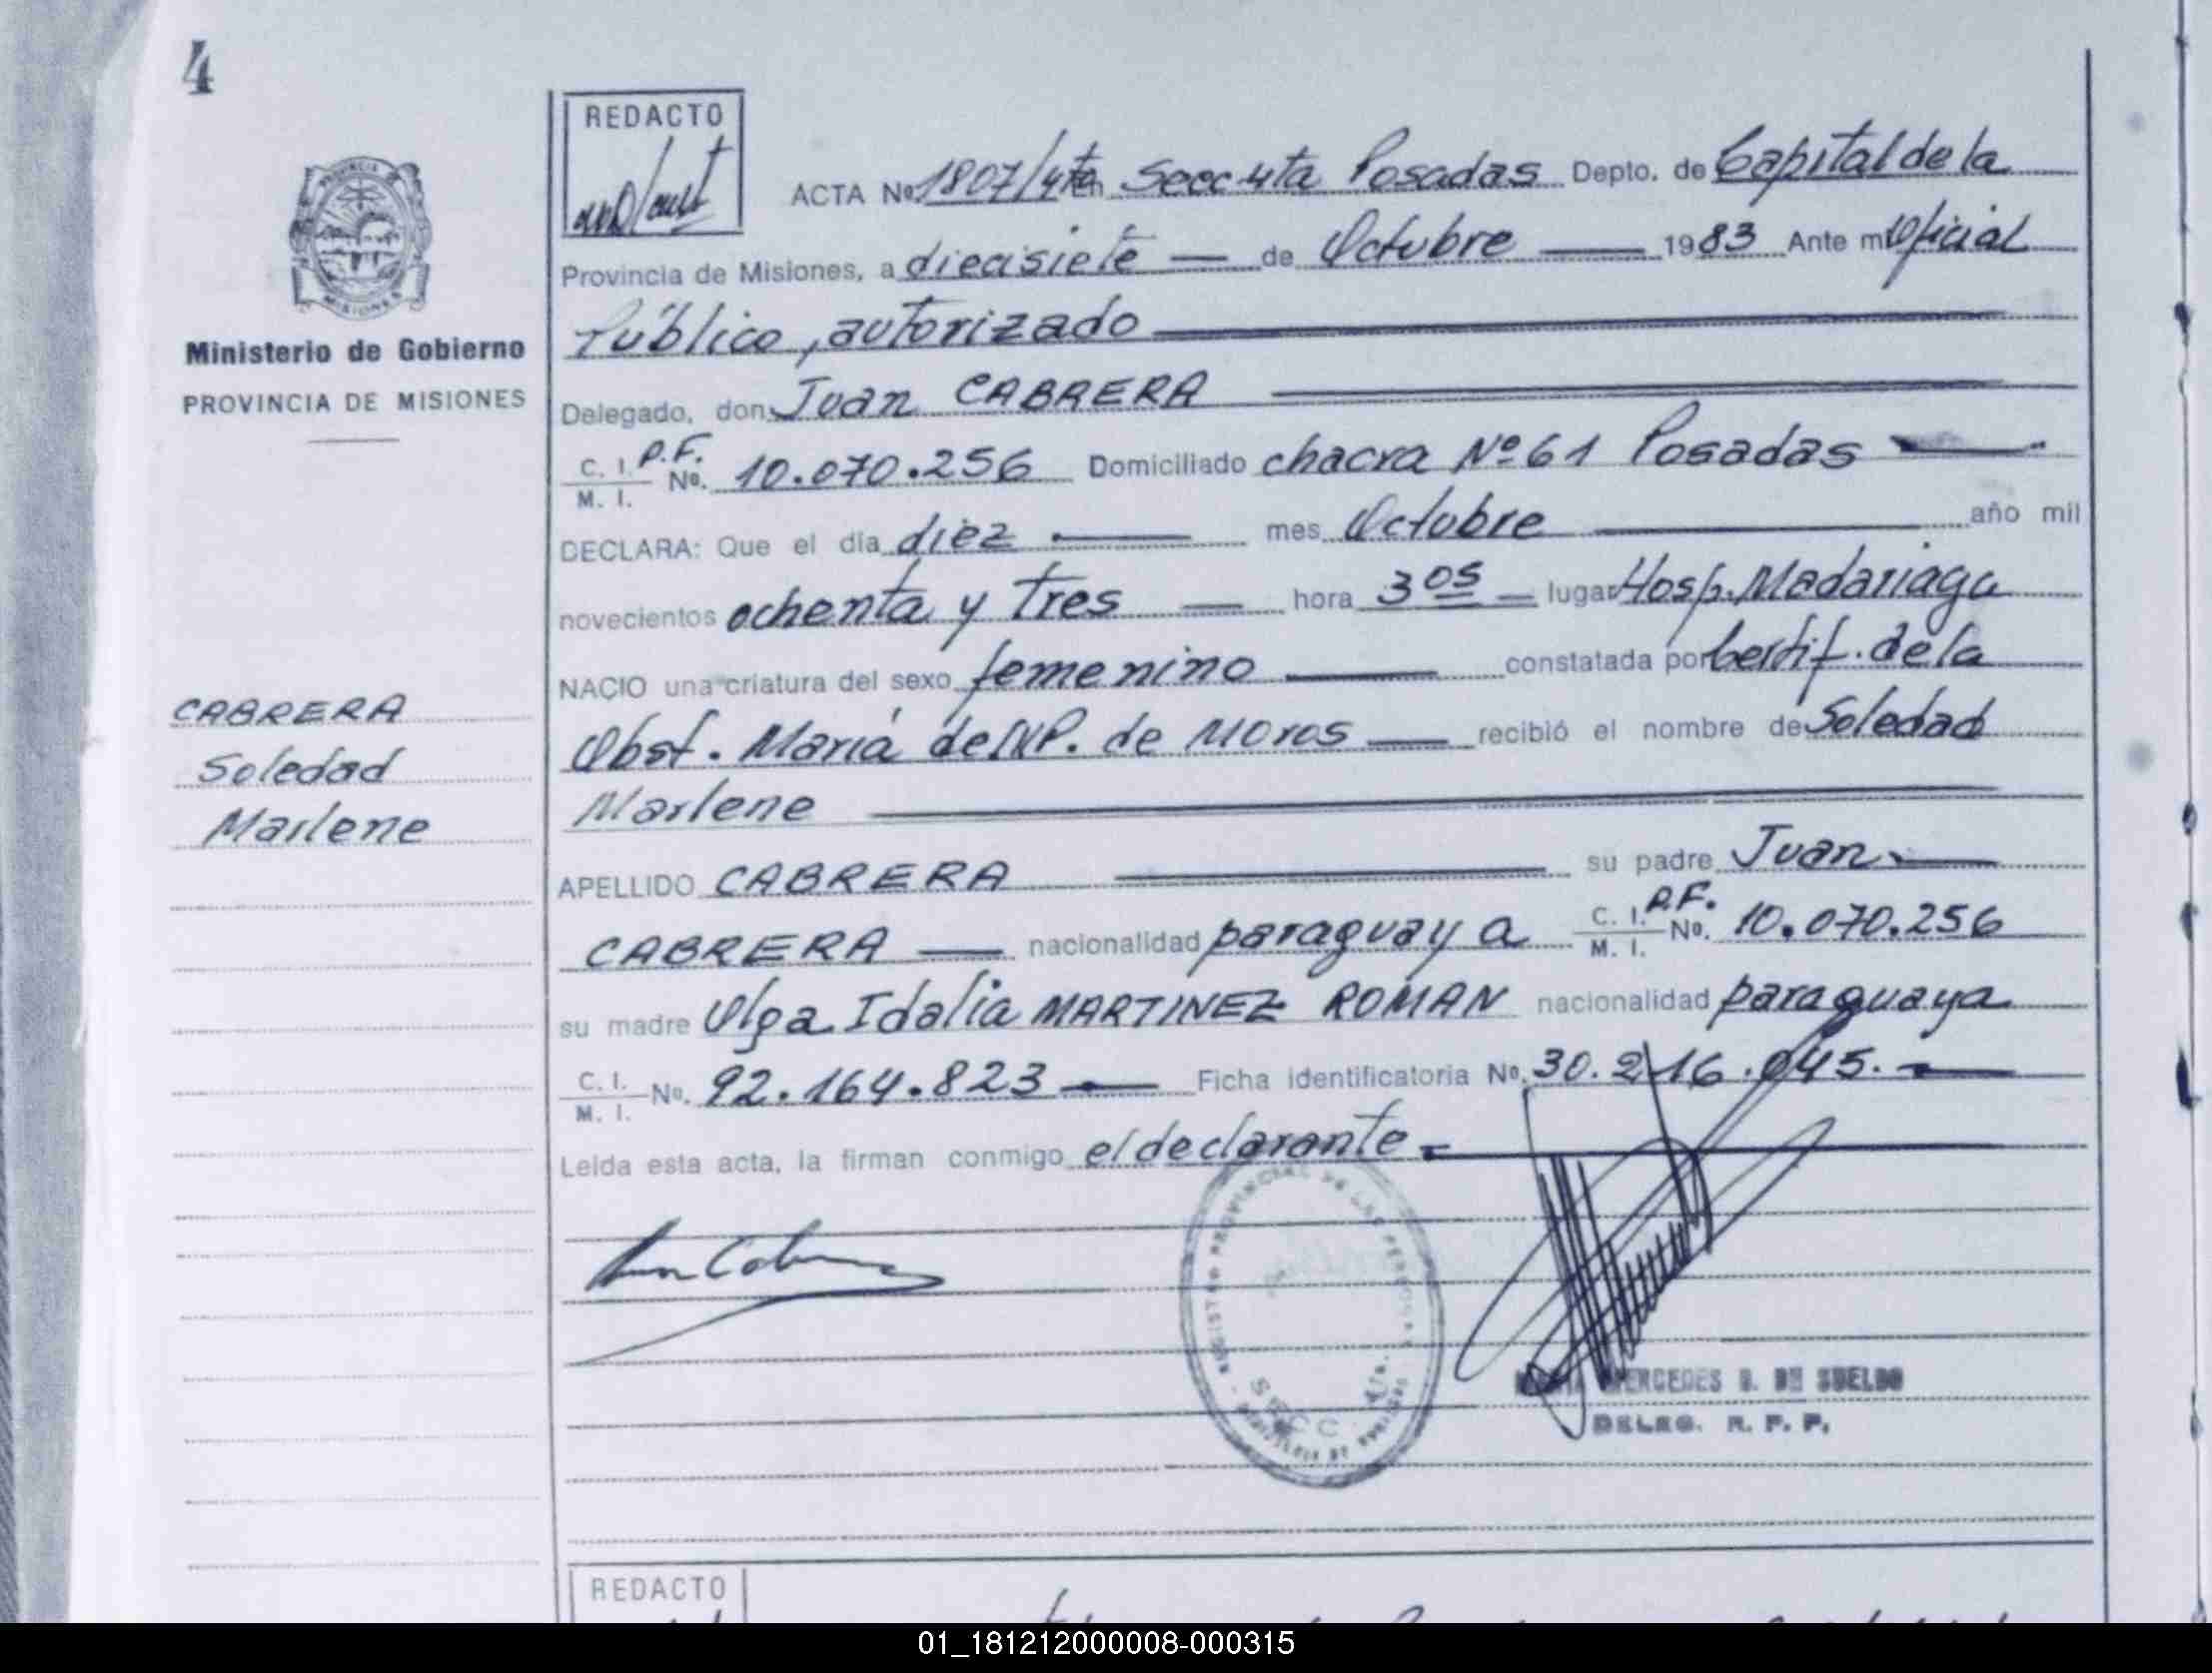 4
REDACTO
ACTA No 1807/4ta en Secc 4ta Posadas Depto. de Capital de la
Provincia de Misiones, a diecisiete — de Octubre — 1983 Ante mi Oficial
Público, autorizado
Delegado, don Juan CABRERA
C. I. P.F.
M. I. No. 10.070.256 Domiciliado chacra Nº 61 Posadas
DECLARA: Que el día diez mes Octubre año mil
novecientos ochenta y tres hora 3 05 lugar Hosp. Madariaga
NACIO una criatura del sexo femenino constatada por Certif. de la
Obst. María de P. de Moros recibió el nombre de Soledad
Marlene
APELLIDO CABRERA su padre Juan
C. I. P.F.
CABRERA nacionalidad paraguaya M. I. No. 10.070.256
su madre Olga Idalia MARTINEZ ROMAN nacionalidad paraguaya
C. I.
M. I. No. 92.164.823 Ficha identificatoria No. 30.216.045.
Leida esta acta, la firman conmigo el declarante
REGISTRO PROVINCIAL DE LAS PERSONAS
SECC. 4ta.
MERCEDES S. DE SUELDO
DELEG. R. P. P.
PROVINCIA
MISIONES
Ministerio de Gobierno
PROVINCIA DE MISIONES
CABRERA
Soledad
Marlene
REDACTO
01_181212000008-000315